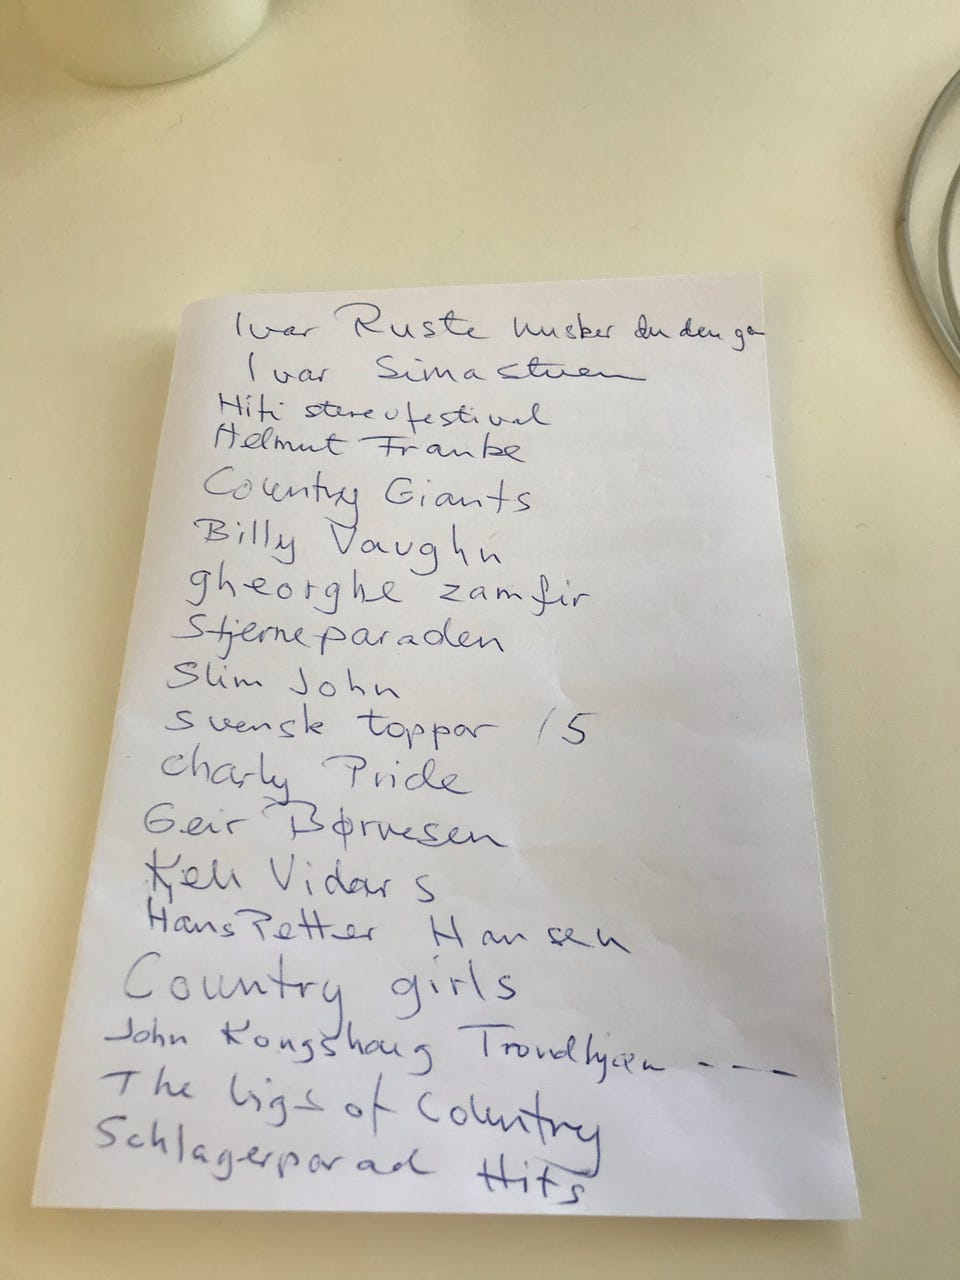 Ivar Ruste husker du den ga
Ivar Simastuen
Hifi stereofestival
Helmut Franke
Country Giants
Billy Vaughn
gheorghe zamfir
Stjerneparaden
Slim John
svensk toppar 15
charly Pride
Geir Børresen
Kjell Vidars
Hans Petter Hansen
Country girls
John Kongshaug Trondhjem - - -
The bigs of Country
Schlagerparad Hits